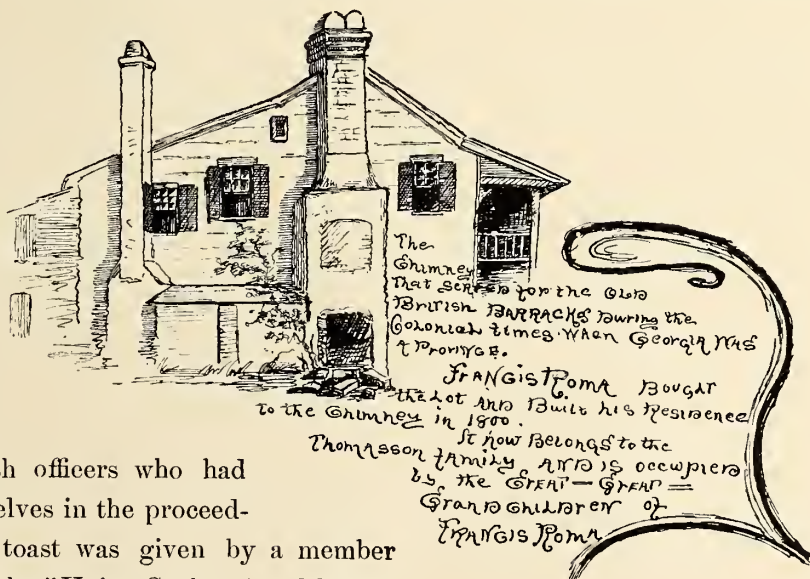 The
Chimney
That Served for the Old
British Barracks During the
Colonial times. When Georgia Was
A Province.
Francis Roma Bought
the Lot And Built his Residence
to the Chimney in 1800.
It now Belongs to the
Thomasson family, And is occupied
by the Great-Great=
Grand Children of
Francis Roma
sh officers who had
elves in the proceed-
toast was given by a member